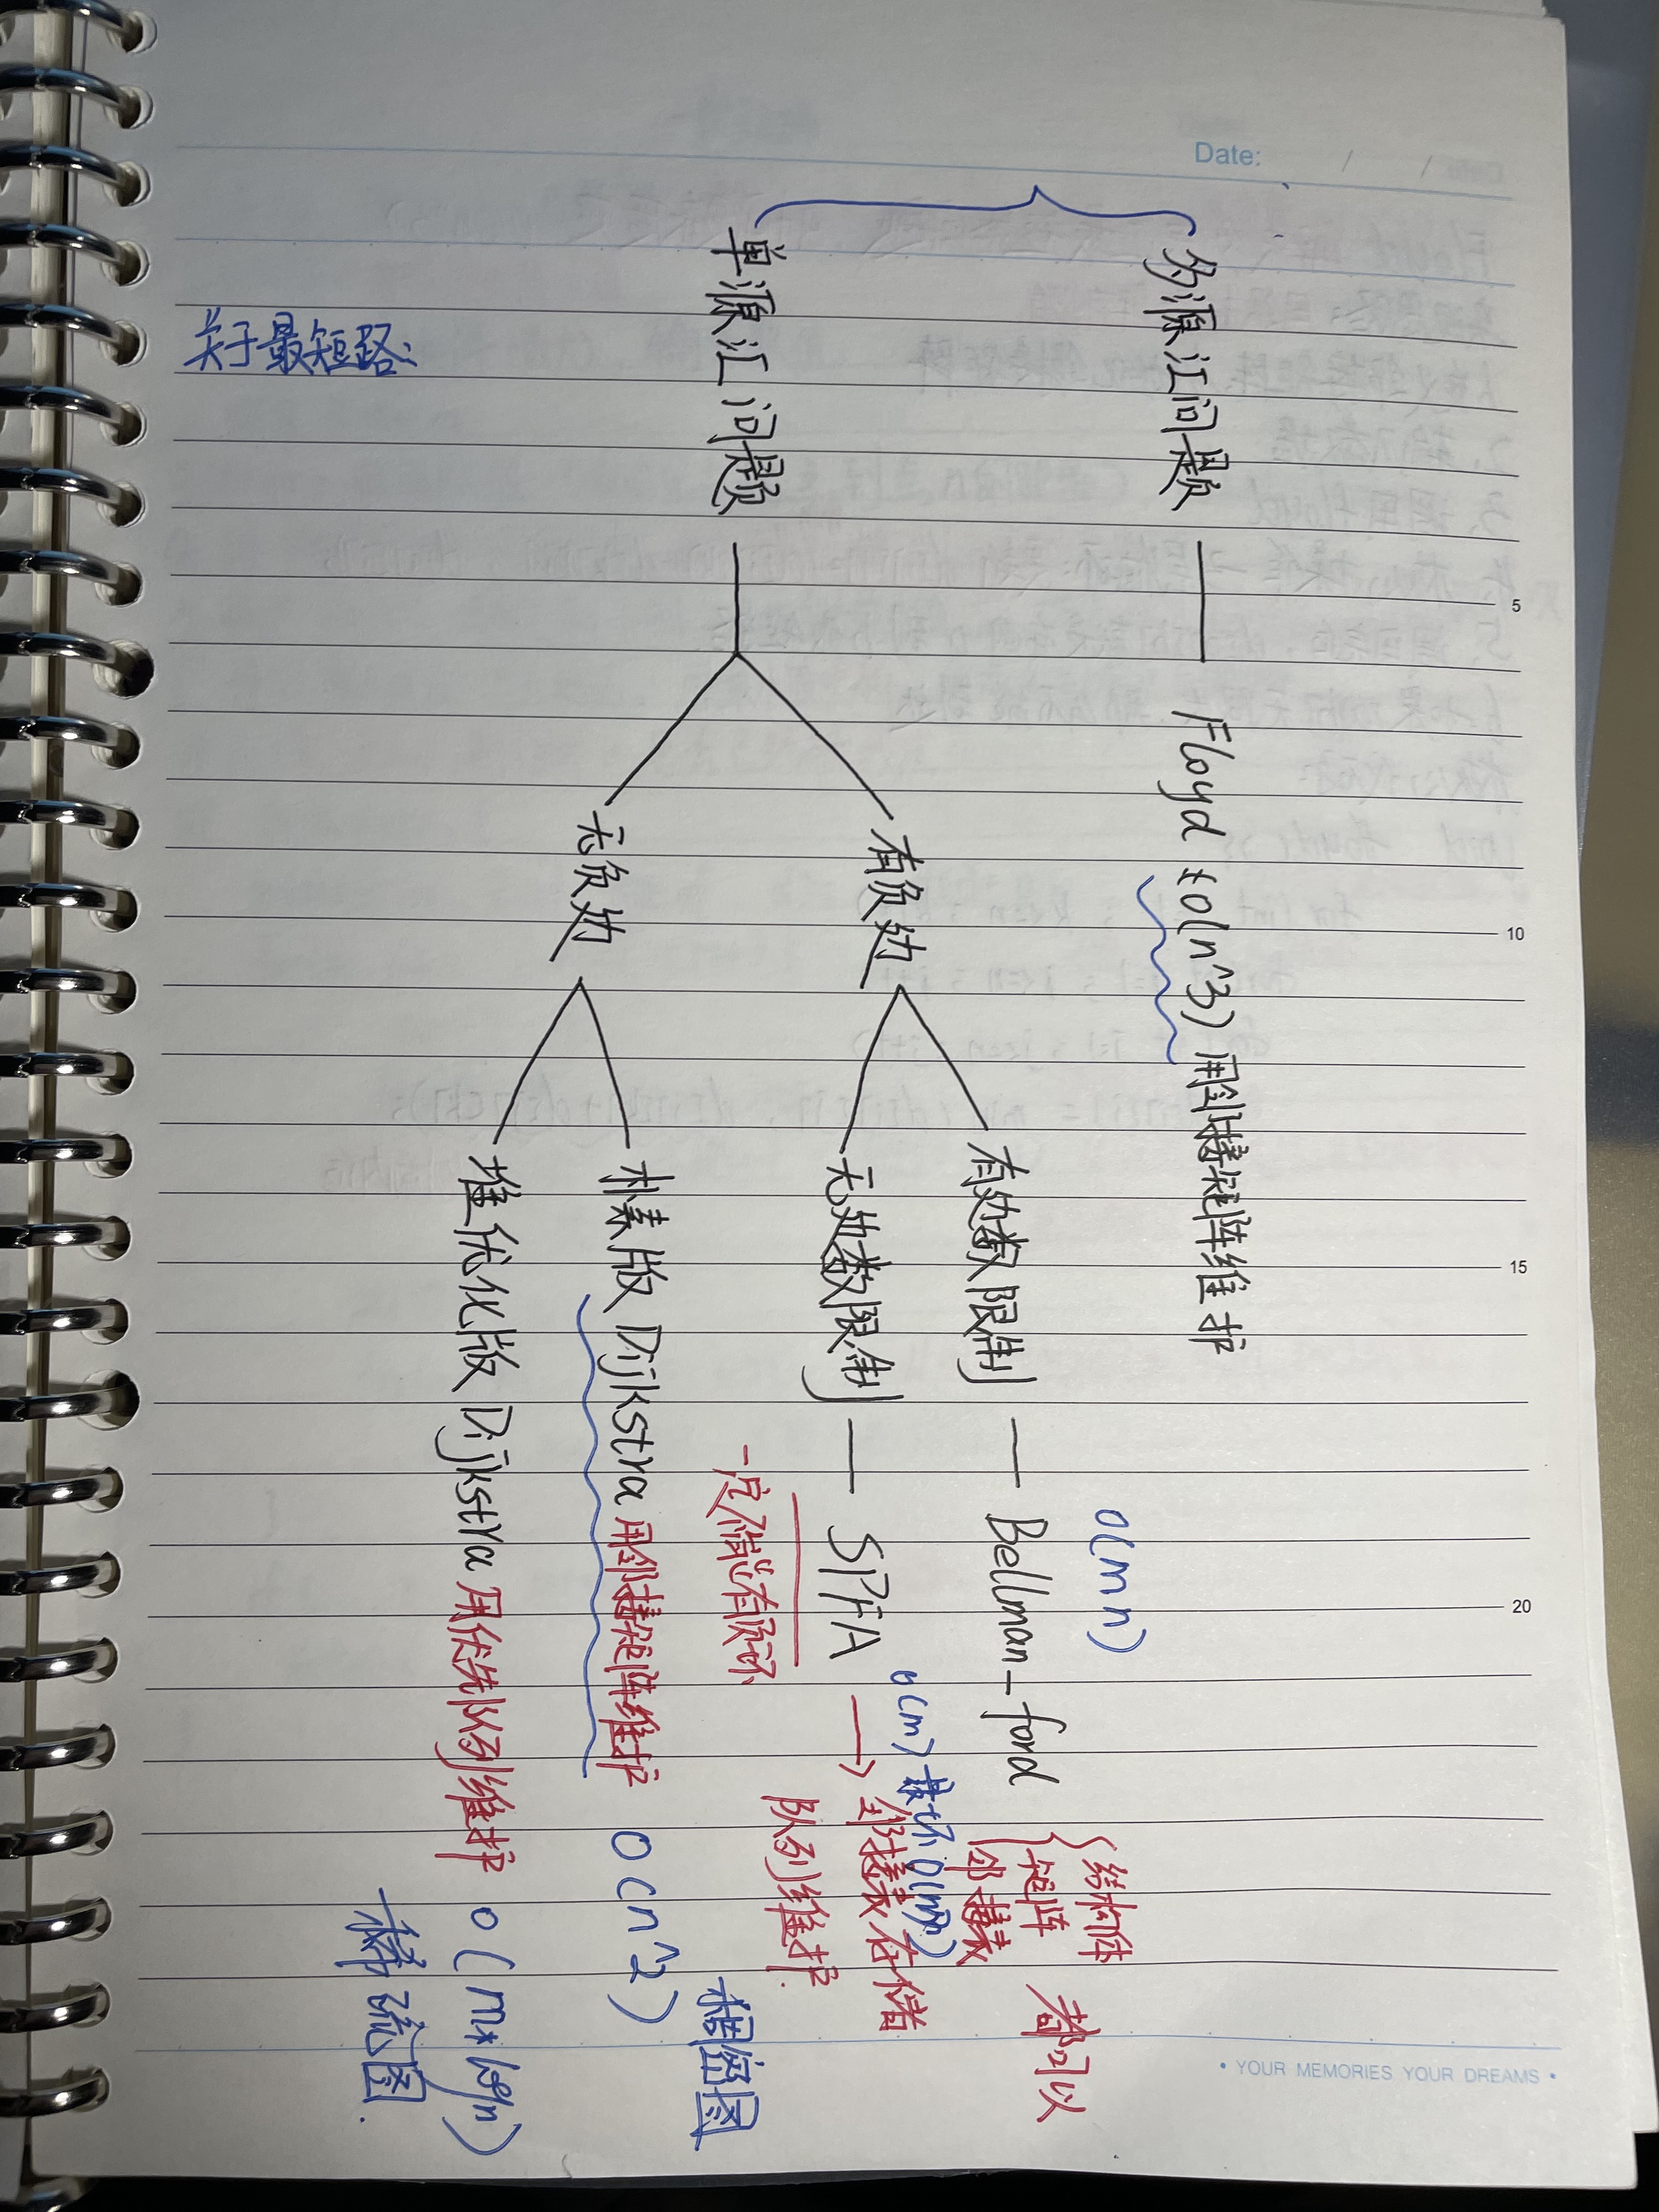 Date: / /
关于最短路:
多源汇问题
Floyd
o(n^3) 用邻接矩阵维护
单源汇问题
有负边
有边数限制
Bellman-ford
o(mn)
结构体
矩阵
邻接表
都可以
无边数限制
SPFA
o(m) 最坏o(nm)
邻接表存储
队列维护
只能有负环
无负边
朴素版 Dijkstra 用邻接矩阵维护
O(n^2)
稠密图
堆优化版 Dijkstra 用优先队列维护
o(m*logn)
稀疏图.
5
10
15
20
• YOUR MEMORIES YOUR DREAMS •